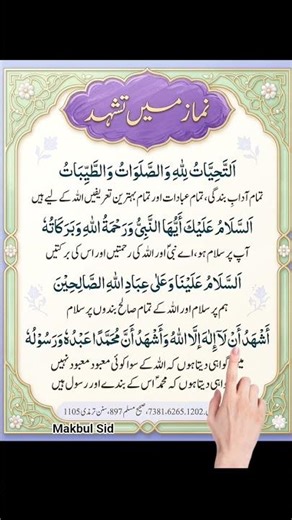 نماز میں تشہد
اَلتَّحِيَّاتُ لِلّٰهِ وَالصَّلَوَاتُ وَالطَّيِّبَاتُ
تمام آداب بندگی، تمام عبادات اور تمام بہترین تعریفیں اللہ کے لیے ہیں
اَلسَّلَامُ عَلَيْكَ اَيُّهَا النَّبِيُّ وَرَحْمَةُ اللّٰهِ وَبَرَكَاتُهٗ
آپ پر سلام ہو، اے نبیؐ اور اللہ کی رحمتیں اور اس کی برکتیں
اَلسَّلَامُ عَلَيْنَا وَعَلٰى عِبَادِ اللّٰهِ الصَّالِحِيْنَ
ہم پر سلام اور اللہ کے تمام صالح بندوں پر سلام
اَشْهَدُ اَنْ لَّآ اِلٰهَ اِلَّا اللّٰهُ وَاَشْهَدُ اَنَّ مُحَمَّدًا عَبْدُهٗ وَرَسُوْلُهٗ
گواہی دیتا ہوں کہ اللہ کے سوا کوئی معبود معبود نہیں
دیتا ہوں کہ محمدؐ اس کے بندے اور رسول ہیں
7381،6265،1202، صحیح مسلم 897، سنن ترمذی 1105
Makbul Sid